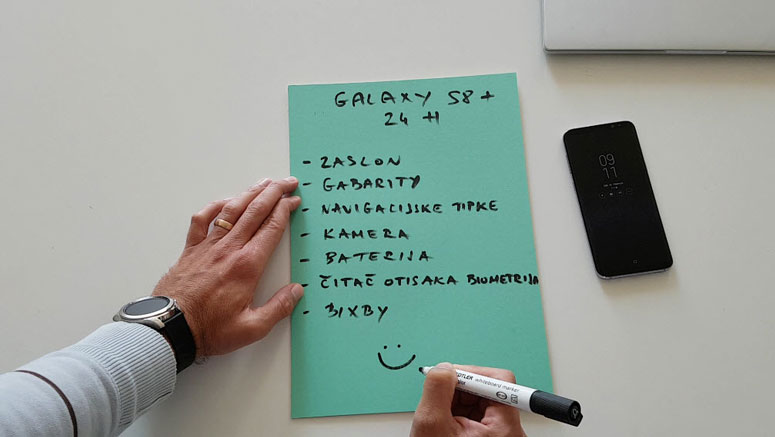 GALAXY S8+
24 H
- ZASLON
- GABARITY
- NAVIGACIJSKE TIPKE
- KAMERA
- BATERIJA
- ČITAČ OTISAKA BIOMETRIJA
- BIXBY
09
11
whiteboard marker